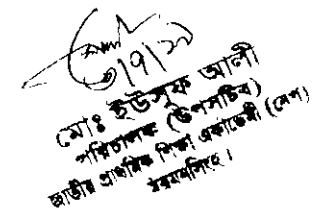 ৩।৭।১৯
মোঃ ইউসুফ আলী
পরিচালক (উপসচিব)
জাতীয় প্রাথমিক শিক্ষা একাডেমী (নেপ)
ময়মনসিংহ।